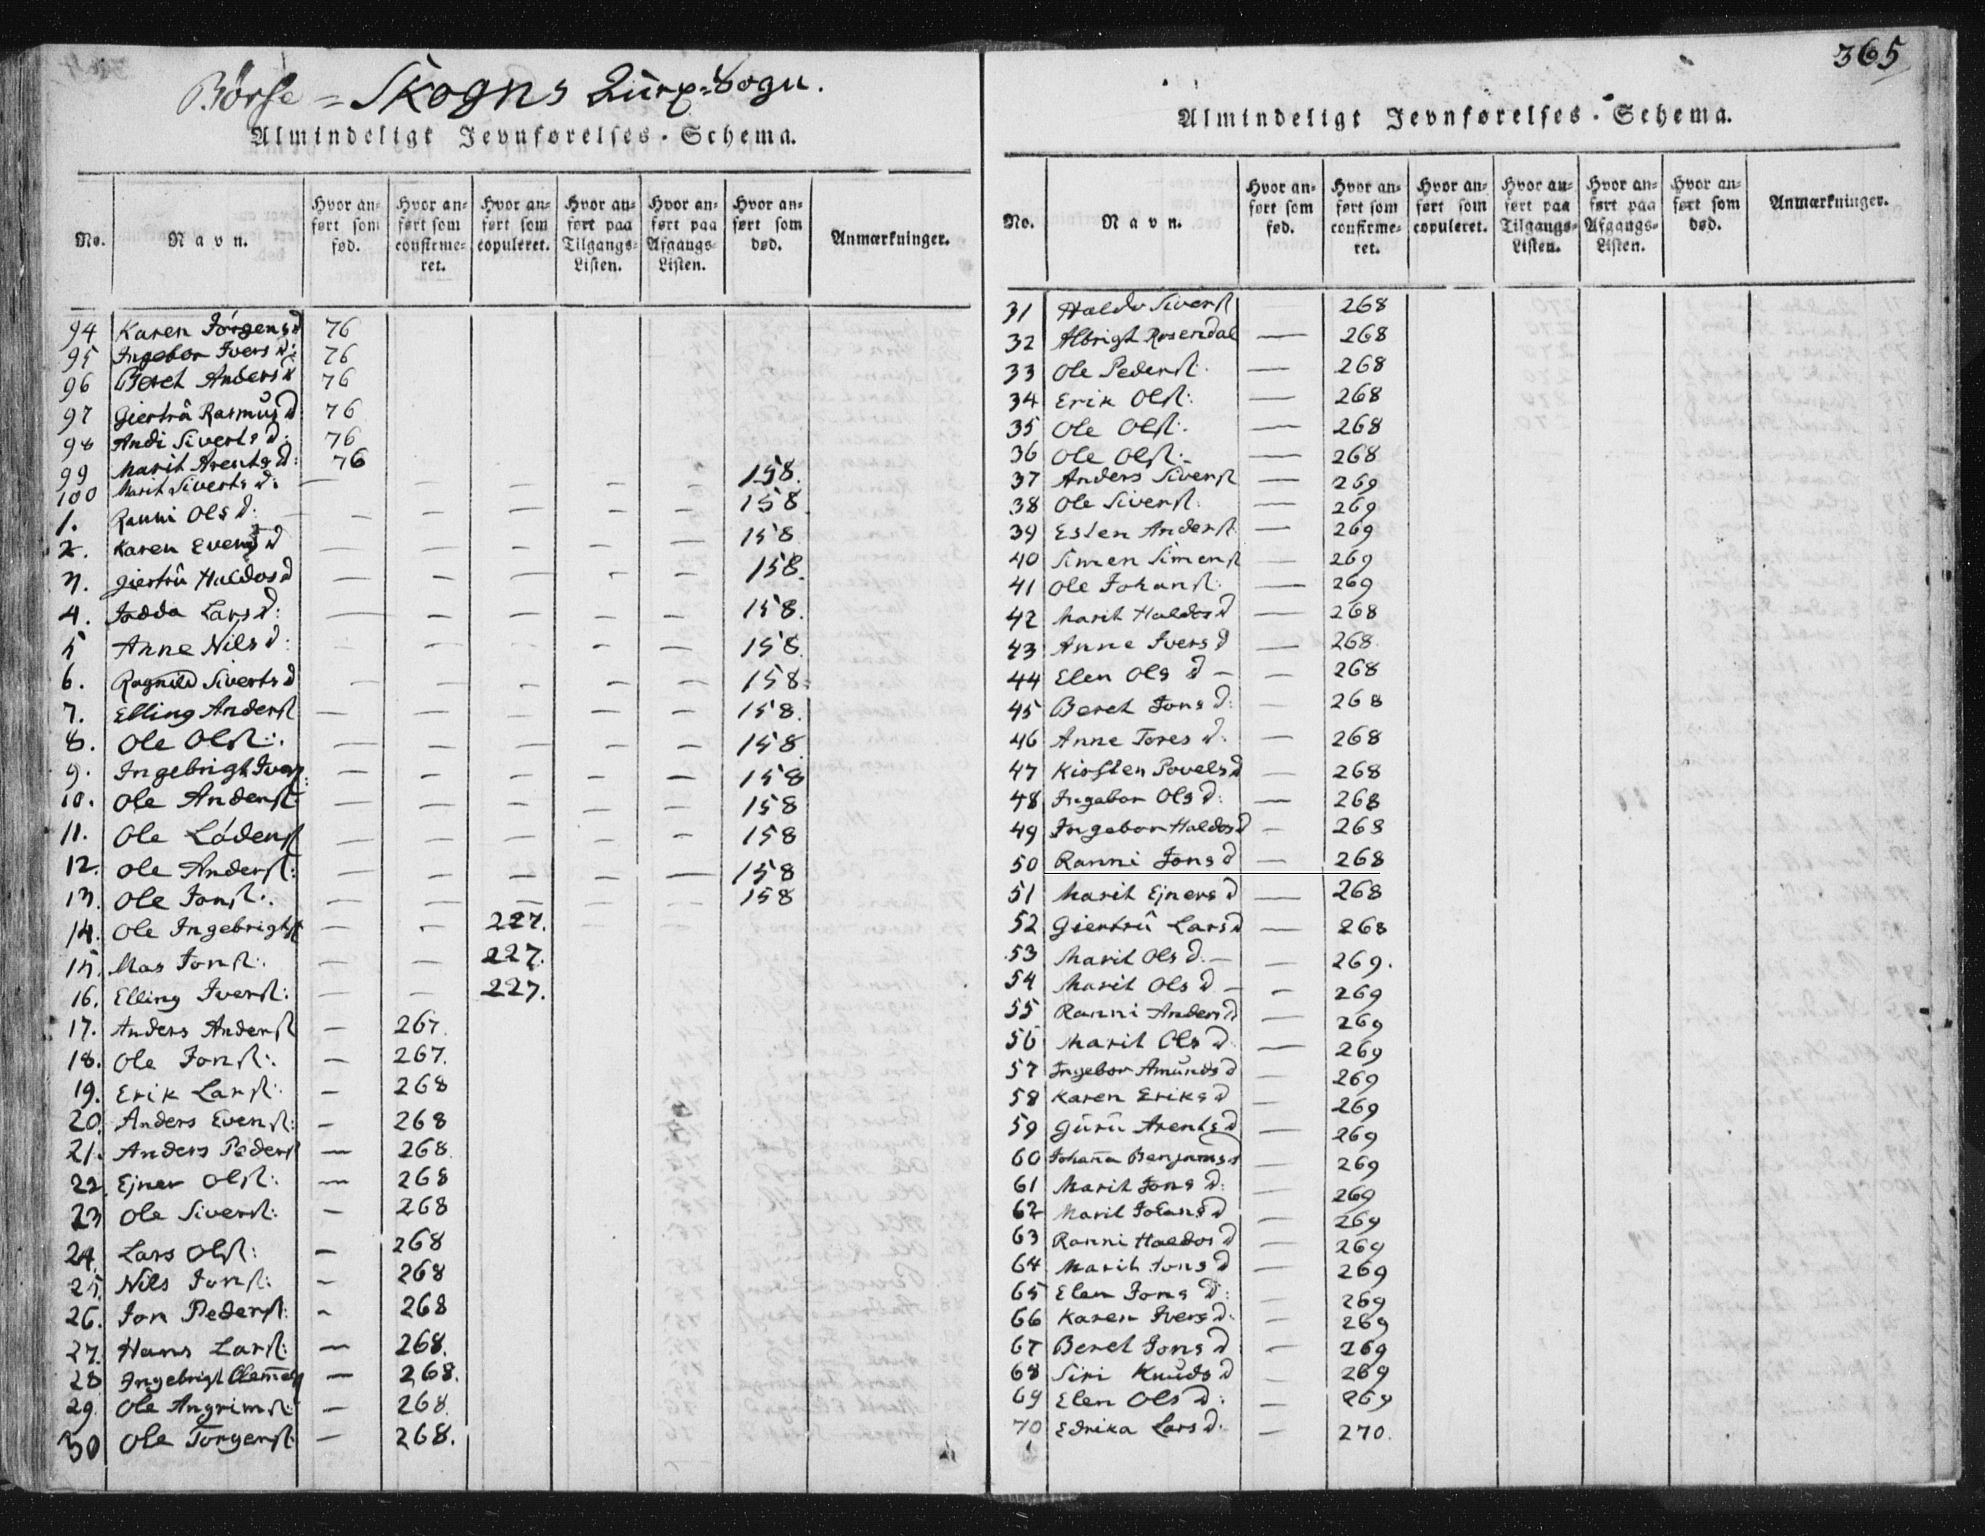 Børse = Skogns
Almindeligt Jevnførelses-Schema.
No. Navn. Hvor anført som fød. Hvor anført som confirmeret. Hvor anført som copuleret. Hvor anført paa Tilgangs-Listen. Hvor anført paa Afgangs-Listen. Hvor anført som død. Anmærkninger.
94 Karen Jörgens d 76
95 Ingebor Ivers d: 76
96 Beret Anders d 76
97 Giertrů Rasmus d 76
98 Andi Siverts d: 76
99 Marit Arents d: 76
100 Marit Siverts d: — — — — — 158.
1. Ranni Ols d: — — — — — 158.
2. Karen Evens d — — — — — 158
3. Giertrů Haldos d — — — — — 158.
4. Lars d: — — — — — 158.
5 Anne Nils d: — — — — — 158
6. Ragnild Siverts d — — — — — 158.
7. Elling Anderss — — — — — 158.
8. Ole Olss:. — — — — — 158
9. Ingebrigt Iverss — — — — — 158
10. Ole Anderss: — — — — — 158
11. Ole Lödenss — — — — — 158
12. Ole Anderss: — — — — — 158
13. Ole Jonss:. — — — — — 158
14. Ole Ingebrigtss — — 227.
15. Mas Jonss:. — — 227.
16. Elling Iverss: — — 227.
17. Anders Anderss — 267.
18. Ole Jonss:. — 267.
19. Erik Larss: — 268
20. Anders Evenss: — 268
21. Anders Pederss — 268.
22. Ejner Olss: — 268
23 Ole Siverss: — 268
24. Lars Olss: — 268
25. Nils Jonss: — 268
26. Jon Pederss: — 268
27. Hans Larss: — 268.
28 Ingebrigt — 268.
29. Ole Angrimss: — 268.
30 Ole Torgerss: — 268.
365
Almindeligt Jevnførelses-Schema.
No. Navn. Hvor anført som fød. Hvor anført som confirmeret. Hvor anført som copuleret. Hvor anført paa Tilgangs-Listen. Hvor anført paa Afgangs-Listen. Hvor anført som død. Anmærkninger.
31 Haldo Siverss — 268
32 Albrigt Rosendal — 268
33 Ole Pederss: — 268
34 Erik Olss: — 268
35 Ole Olss:. — 268
36 Ole Olss:- — 268
37 Anders Siverss — 269
38 Ole Siverss: — 269
39 Esten Anderss — 269
40 Simen Simenss — 269
41 Ole Johanss: — 269
42 Marit Haldos d — 268
43 Anne Ivers d — 268.
44 Elen Ols d — — 268
45 Beret Jons d: — 268
46 Anne Tores d: — 268
47 Kirsten Povels d — 268
48 Ingebor Ols d: — 268
49 Ingebor Haldos d — 268
50 Ranni Jons d — 268
51 Marit Ejners d — 268
52 Giertrů Lars d — 268
53 Marit Ols d. — — 269.
54 Marit Ols d — — 269
55 Ranni Anders d — 269
56 Marit Ols d — 269
57 Ingebor Amunds d — 269
58 Karen Eriks d — 269
59 Gůrů Arents d — 269
60 Johana — 269
61 Marit Jons d: — 269
62 Marit Johans d — 269
63 Ranni Haldos d — 269
64 Marit Jons d — 269
65 Elen Jons d: — 269
66 Karen Ivers d: — 269
67 Beret Jons d — 269
68 Siri Knuds d — 269
69 Elen Ols d: — 269
70 Edrika Lars d: — 270.